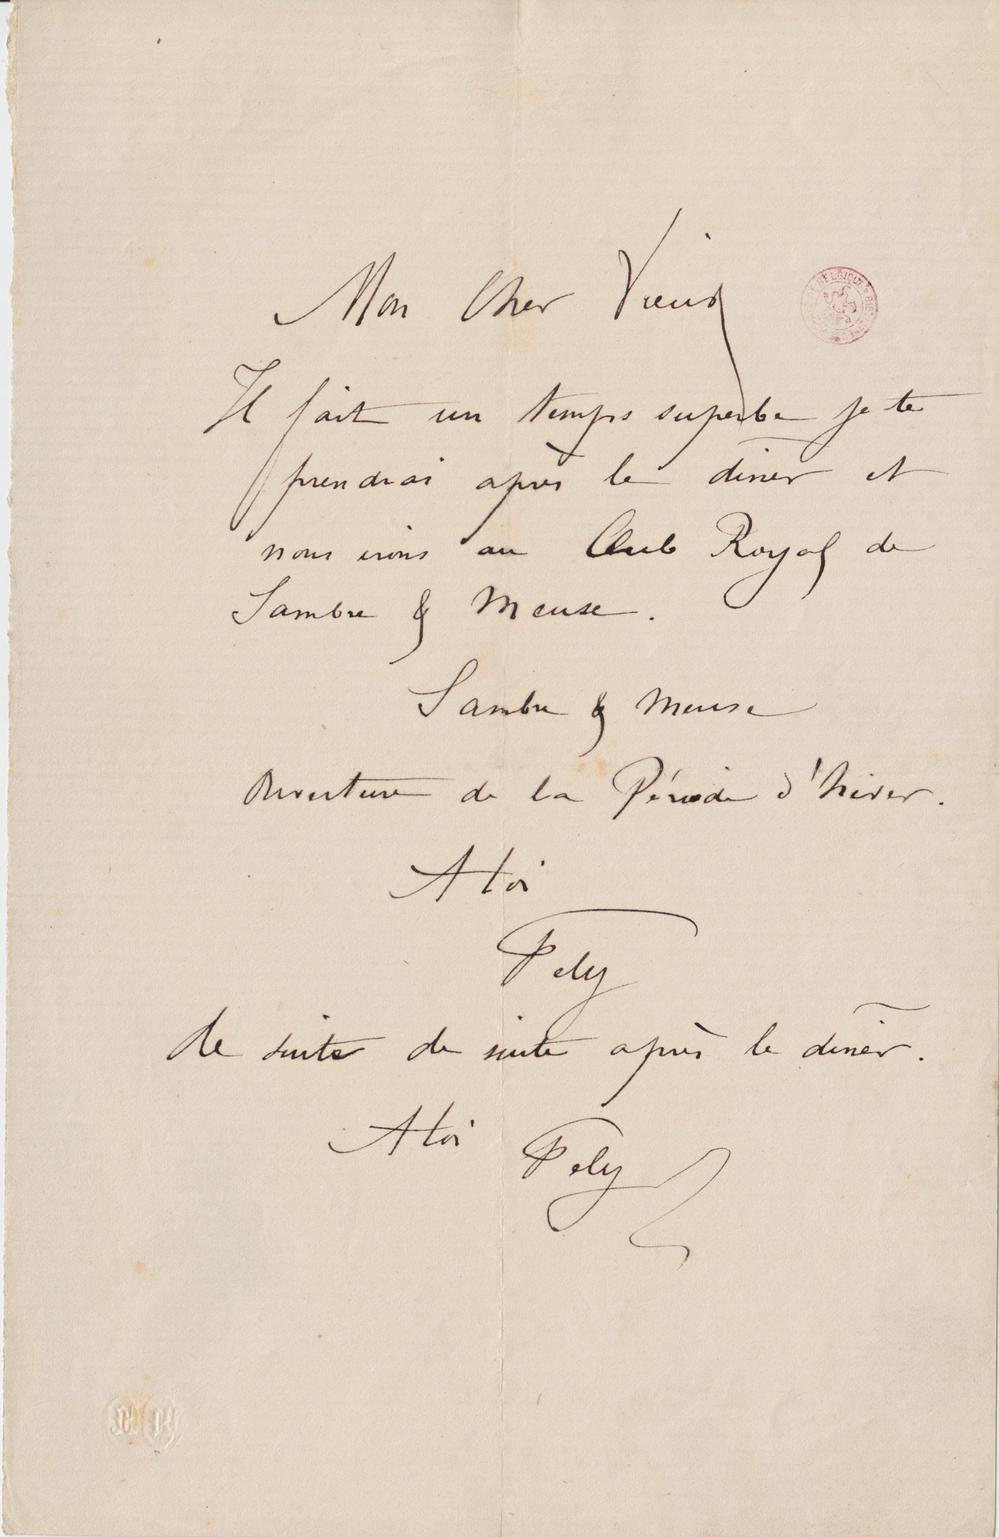 Mon Cher Vieux
Il fait un temps superbe je te
prendrai après le dîner et
nous irons au Club Royal de
Sambre & Meuse.
Sambre & Meuse
Ouverture de la Période d'hiver.
A toi
Fély
de suite de suite après le dîner.
A toi Fély